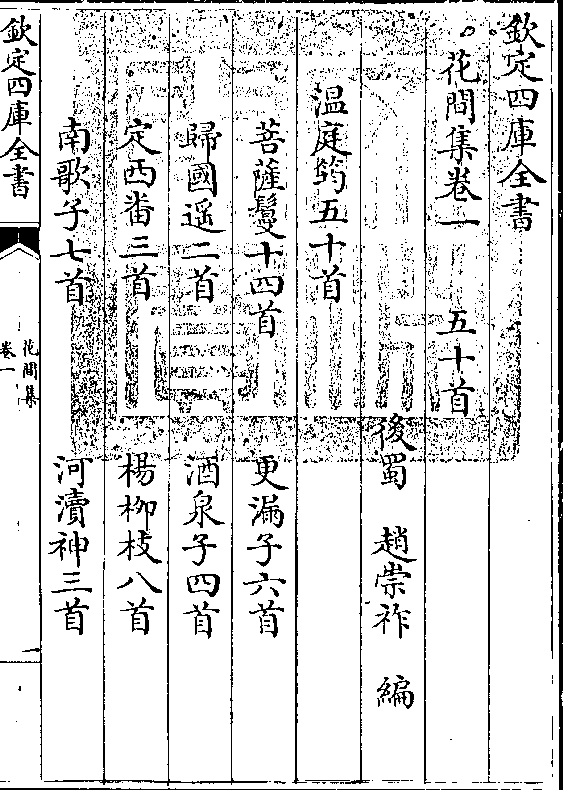 欽定四庫全書
花間集卷一　五十首
後蜀　趙崇祚　編
温庭筠五十首
菩薩鬘十四首　更漏子六首
歸國遥二首　酒泉子四首
定西番三首　楊柳枝八首
南歌子七首　河瀆神三首
欽定四庫全書
花間集
卷一